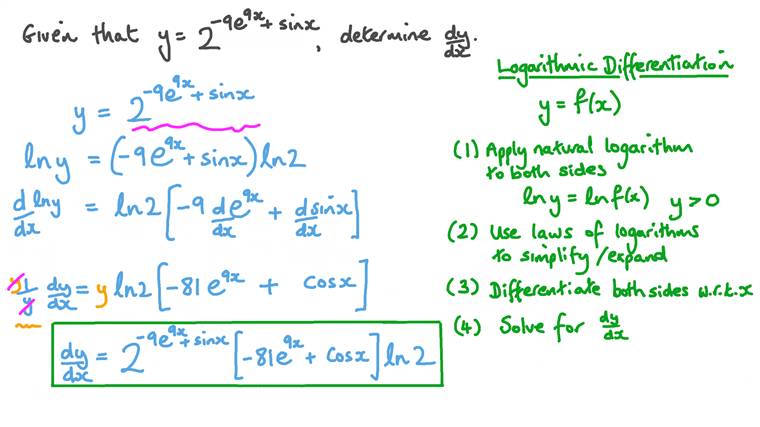 Given that y = 2^(-9e^(9x) + sinx), determine dy/dx.
y = 2^(-9e^(9x) + sinx)
ln y = (-9e^(9x) + sinx) ln2
d/dx lny = ln2 [-9 de^(9x)/dx + dsinx/dx]
y 1/y dy/dx = y ln2 [-81e^(9x) + cosx]
dy/dx = 2^(-9e^(9x) + sinx) [-81e^(9x) + cosx] ln2
Logarithmic Differentiation
y = f(x)
(1) Apply natural logarithm
to both sides
ln y = ln f(x) y > 0
(2) Use laws of logarithms
to simplify/expand
(3) Differentiate both sides w.r.t.x
(4) Solve for dy/dx